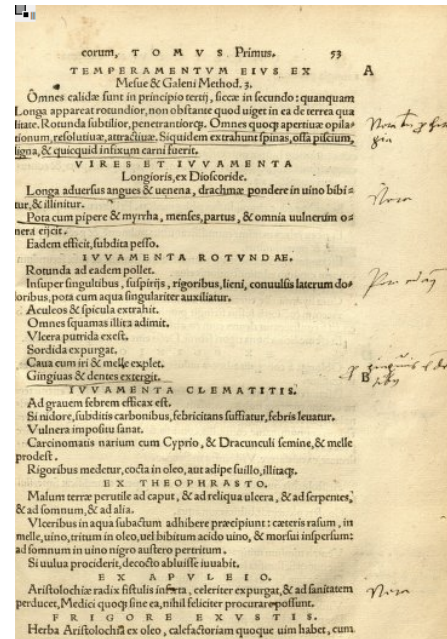 eorum, TOMVS. Primus. 53
TEMPERAMENTVM EIVS EX A
Mesue & Galeni Method. 3.
Omnes calidæ sunt in principio tertij, siccæ in secundo: quanquam
Longa appareat rotundior, non obstante quod uiget in ea de terrea qua
litate. Rotunda subtilior, penetrantiorq;. Omnes quoq; apertiuæ opila-
tionum, resolutiuæ, attractiuæ. Siquidem extrahunt spinas, ossa piscium,
ligna, & quicquid infixum carni fuerit.
VIRES ET IVVAMENTA
Longioris, ex Dioscoride.
Longa aduersus angues & uenena, drachmæ pondere in uino bibi-
tur, & illinitur.
Pota cum pipere & myrrha, menses, partus, & omnia uulnerum o-
nera eijcit.
Eadem efficit, subdita pesso.
IVVAMENTA ROTVNDAE.
Rotunda ad eadem pollet.
Insuper singultibus, suspirijs, rigoribus, lieni, conuulsis laterum do-
loribus, pota cum aqua singulariter auxiliatur.
Aculeos & spicula extrahit.
Omnes squamas illita adimit.
Vlcera putrida exest.
Sordida expurgat.
Caua cum iri & melle explet.
Gingiuas & dentes extergit.
B
IVVAMENTA CLEMATITIS.
Ad grauem febrem efficax est.
Si nidore, subditis carbonibus, febricitans suffiatur, febris leuatur.
Vulnera impositu sanat.
Carcinomatis narium cum Cyprio, & Dracunculi semine, & melle
prodest.
Rigoribus medetur, cocta in oleo, aut adipe suillo, illitaq;.
EX THEOPHRASTO.
Malum terræ perutile ad caput, & ad reliqua ulcera, & ad serpentes,
& ad somnum, & ad alia.
Vlceribus in aqua subactum adhibere præcipiunt: cæteris rasum, in
melle, uino, tritum in oleo, uel bibitum acido uino, & morsui inspersum:
ad somnum in uino nigro austero pertritum.
Si uulua prociderit, decocto abluisse iuuabit.
EX APVLEIO.
Aristolochiæ radix fistulis inserta, celeriter expurgat, & ad sanitatem
perducet, Medici quoq; sine ea, nihil feliciter procurare possunt.
FRIGORE EXVSTIS.
Herba Aristolochia ex oleo, calefactoriam quoque uim habet, cum